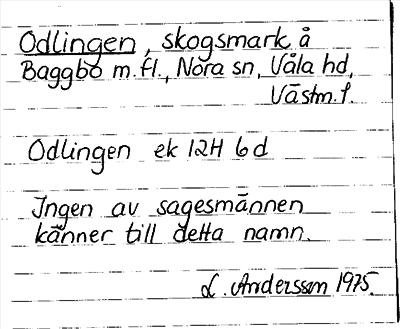 Odlingen, skogsmark å
Baggbo m.fl., Nora sn, Våla hd,
Västm. l.
Odlingen ek 12H 6d
Ingen av sagesmännen
känner till detta namn.
L. Andersson 1975.